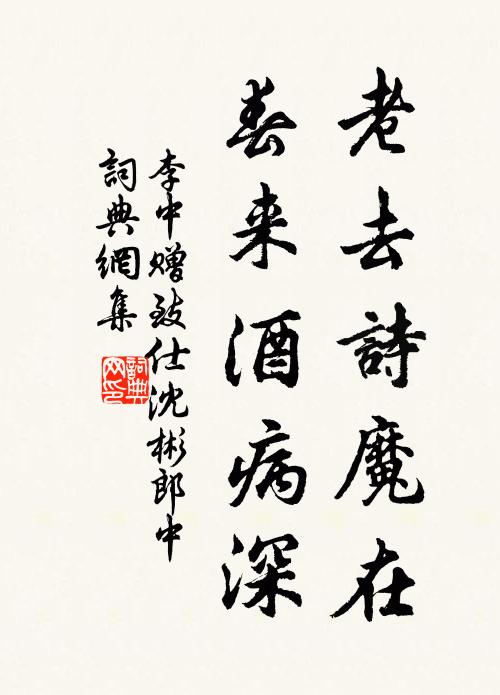 老去詩魔在
春来酒病深
李中贈致仕沈彬郎中
詞典網集
詞典
网印